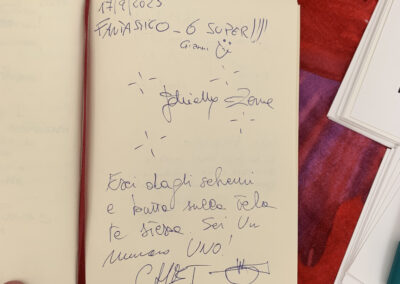 17/9/2023
FANTASTICO - 6 SUPER!!!
Gianni
Esci dagli schemi
e butta sulla tela
te stessa. Sei un
numero UNO!